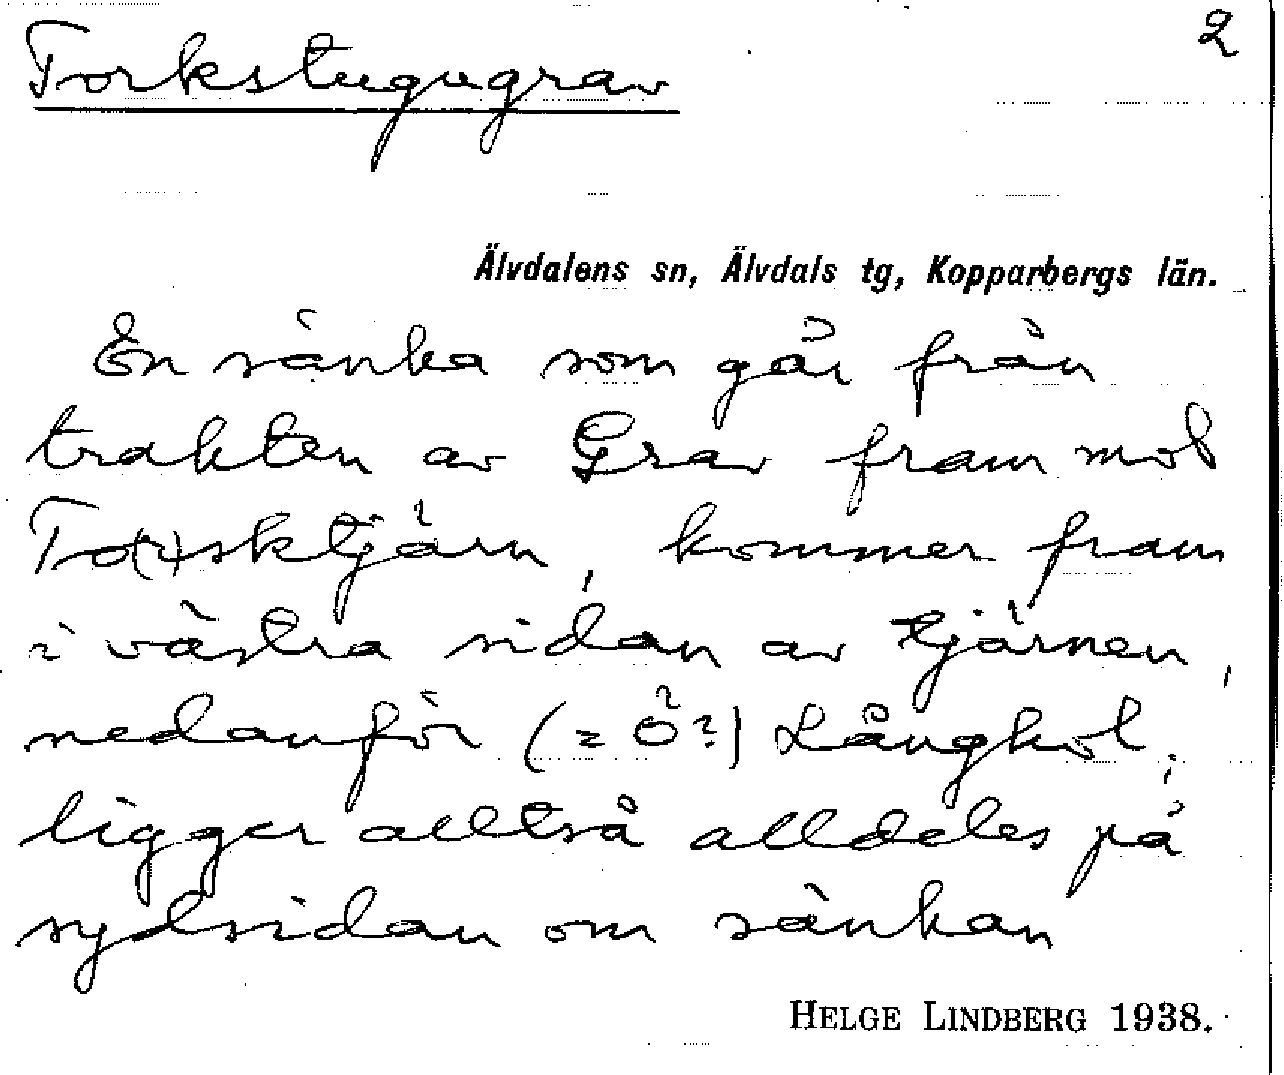 2
Torkstugugrav
Älvdalens sn, Älvdals tg, Kopparbergs län.
En sänka som går från
trakten av Grav fram mot
To(r)sktjärn, kommer fram
i västra sidan av tjärnen,
nedanför (= Ö?) Långhol;
ligger alltså alldeles på
sydsidan om sänkan
HELGE LINDBERG 1938.